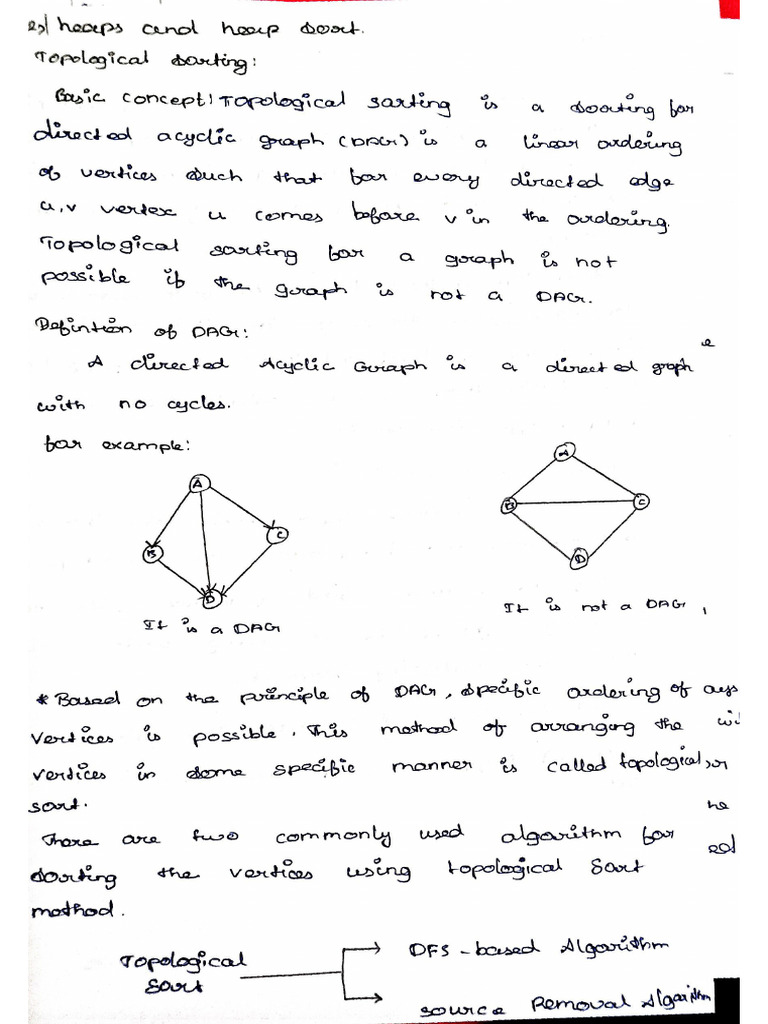 es/ heaps and heap sort.
Topological sorting:
Basic concept! Topological sorting is a sorting for
directed acyclic graph (DAG) is a linear ordering
of vertices such that for every directed edge
u,v vertex u comes before v in the ordering.
Topological sorting for a graph is not
possible if the graph is not a DAG.
Defintion of DAG:
A directed Acyclic Graph is a directed graph
with no cycles.
for example:
A
A
B
C
B
C
D
D
It is a DAG
It is not a DAG,
* Based on the principle of DAG, specific ordering of
vertices is possible. This method of arranging the
vertices in some specific manner is called topological
sort.
There are two commonly used algorithm for
sorting the vertices using topological sort
method.
Topological
Sort
DFS-based Algorithm
source Removal Algorithm